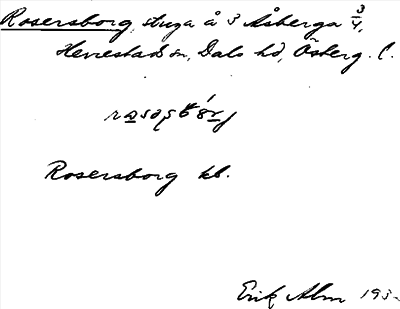 Rosersborg, stuga å 3 Åsberga 3/4,
Herrestads sn, Dals hd, Österg. l.
Rosersborg kb.
Erik Alm 193